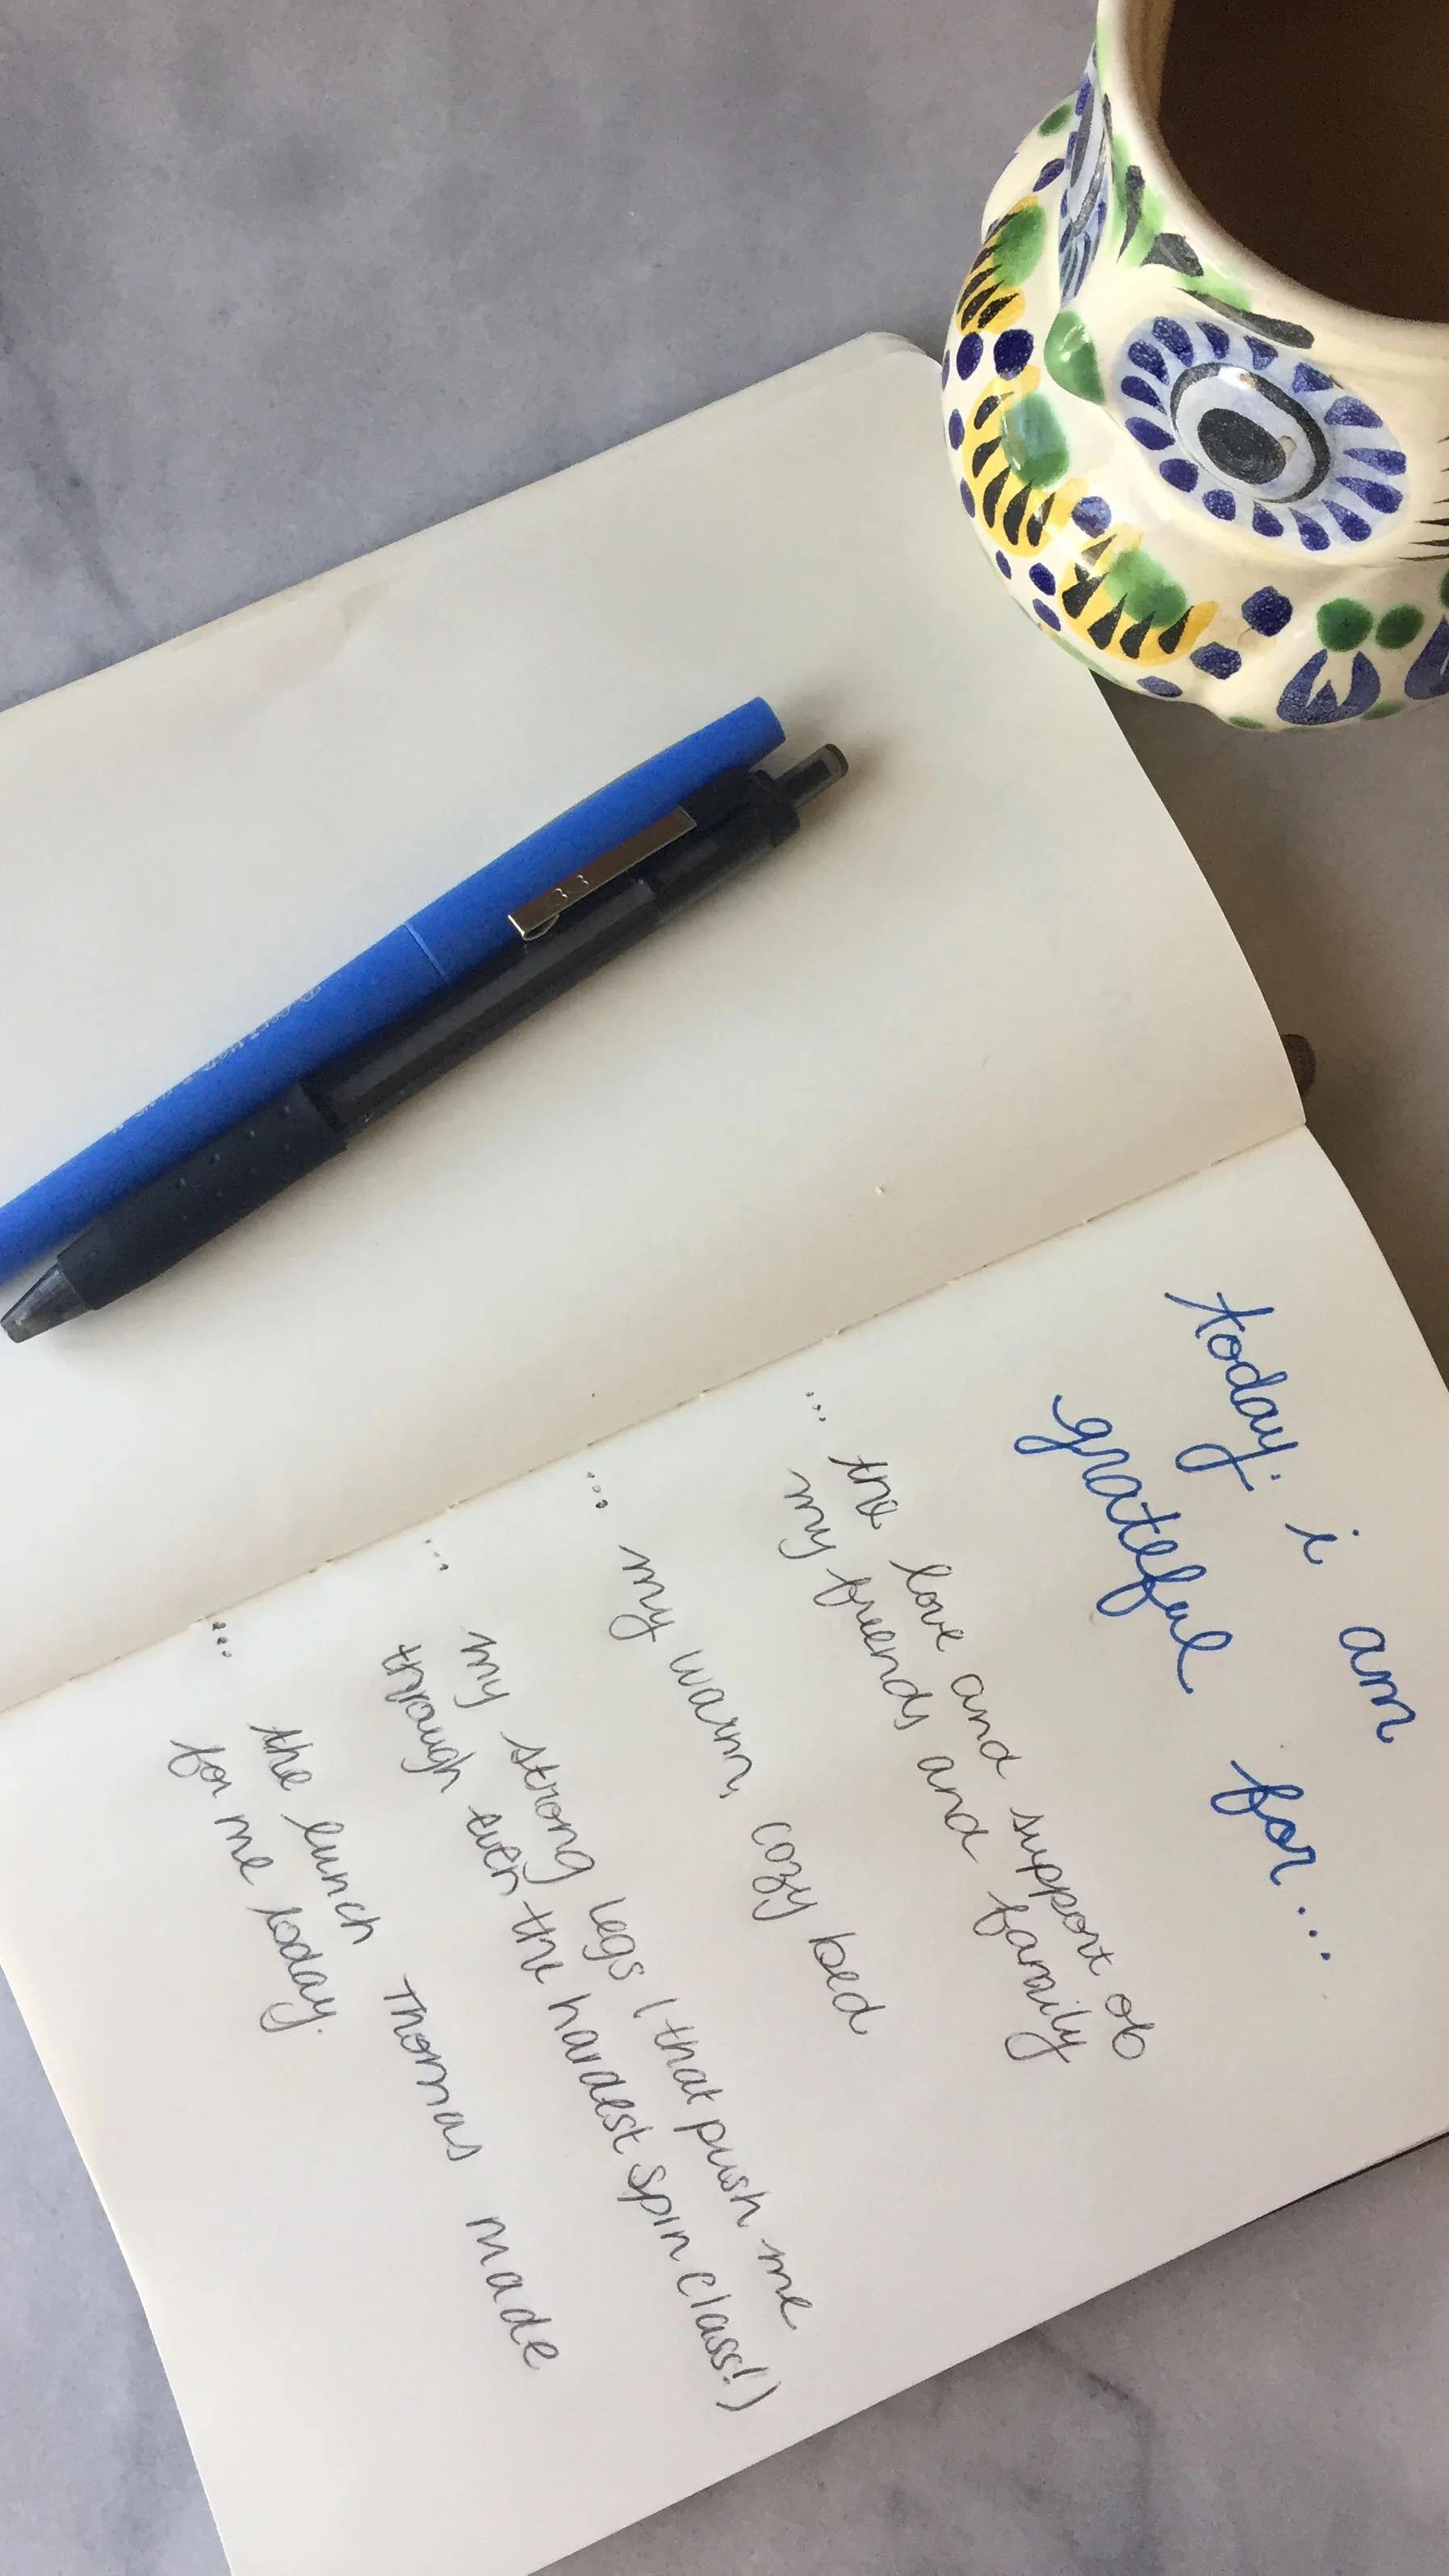 today i am
grateful for...
... the love and support of
my friends and family
... my warm, cozy bed
... my strong legs (that push me
through even the hardest spin class!)
... the lunch Thomas made
for me today.